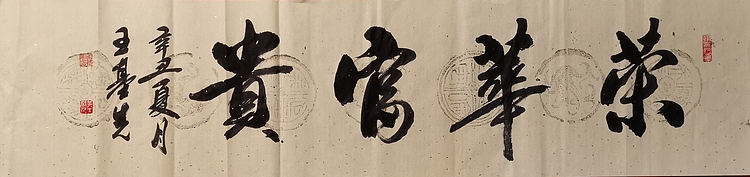 荣華富貴
辛丑夏月
王基先